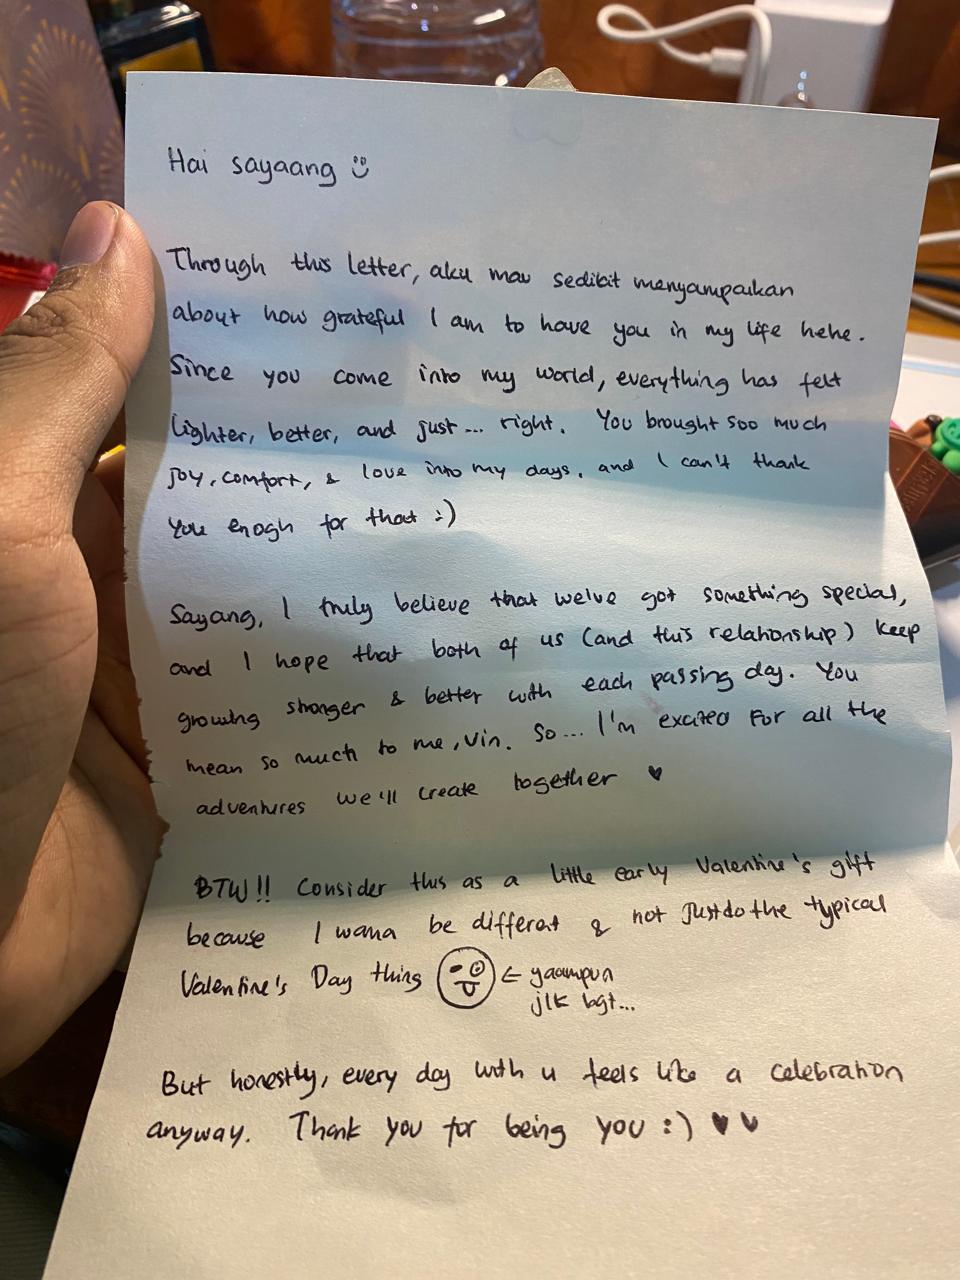 Hai sayaang
Through this letter, aku mau sedikit menyampaikan
about how grateful I am to have you in my life hehe.
Since you come into my world, everything has felt
lighter, better, and just... right. You brought soo much
joy, comfort, & love into my days, and I can't thank
you enogh for that :)
Sayang, I truly believe that we've got something special,
and I hope that both of us (and this relationship) keep
growing stronger & better with each passing day. You
mean so much to me, Vin. So... I'm excited for all the
adventures we'll create together ♥
BTW!! Consider this as a little early Valentine's gift
because I wanna be different & not just do the typical
Valentine's Day thing ← yaampun
jlk bgt...
But honestly, every day with u feels like a celebration
anyway. Thank you for being you :) ♥ ♥